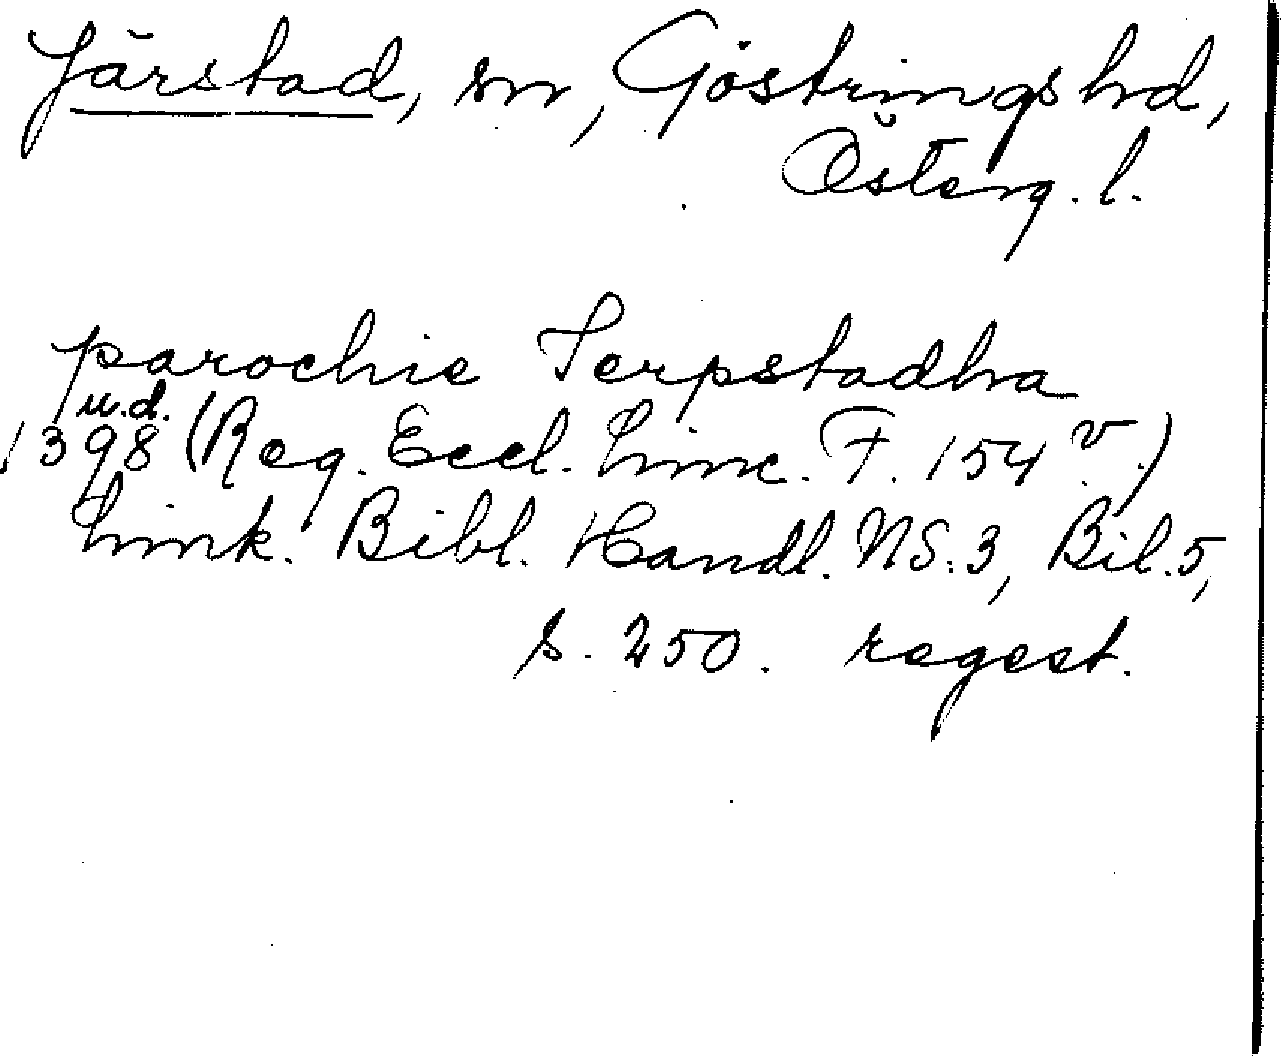 Järstad, sn, Göstrings hd,
Österg. l.
parochie Ierpstadha
u.d.
1398 (Reg. Eccl. Linc. F. 154 v.)
Link. Bibl. Handl. NS. 3, Bil. 5,
s. 250. regest.